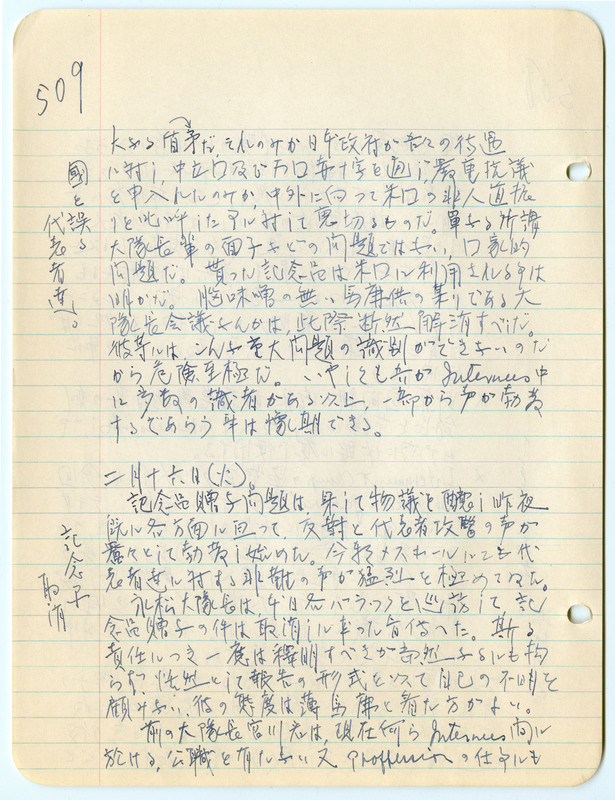 509
國を誤る
代表者達。
大なる
それのみか日本政府が吾々の待遇
に対し、中立国及び万国赤十字を通し、厳重抗議
を申入れたのみか、中外に向って米国の非人道振
りと叫叫した
に対して裏切るものだ。単なる所謂
大隊長輩の面子などの問題ではない、国家的
問題だ。貰った記念品は米国に利用される事は
明かだ。脳味噌の無い馬鹿供の集りである大
隊長会議なんかは、此際断然解消すべだ。
彼等には、こんな重大問題の識別ができないのだ
から危険至極だ。いやしくも吾が Internees 中
に多数の識者がある以上、一部から声が勃発
するであらう事は
期できる。
二月十六日(火)。
記念品贈与問題は、果して物議を醸し昨夜
既に各方面に亘って、反対と代表者攻撃の声が
囂々として勃発し始めた。今朝メスホールにても代
表者達に対する非難の声が猛烈を極めてゐた。
永松大隊長は、午日各バラックを巡訪して、記
念品贈与の件は取消しになった旨傳へた。斯る
責任につき一應は釋明すべきが当然なるにも拘
らず、恬然として報告の形式を以て自己の不明を
顧みない、彼の態度は薄馬鹿と看た方がよい。
前の大隊長宮川君は、現在何ら Internees 間に
於ける、公職を有たない又 proffession の仕
にも
記念品
取消